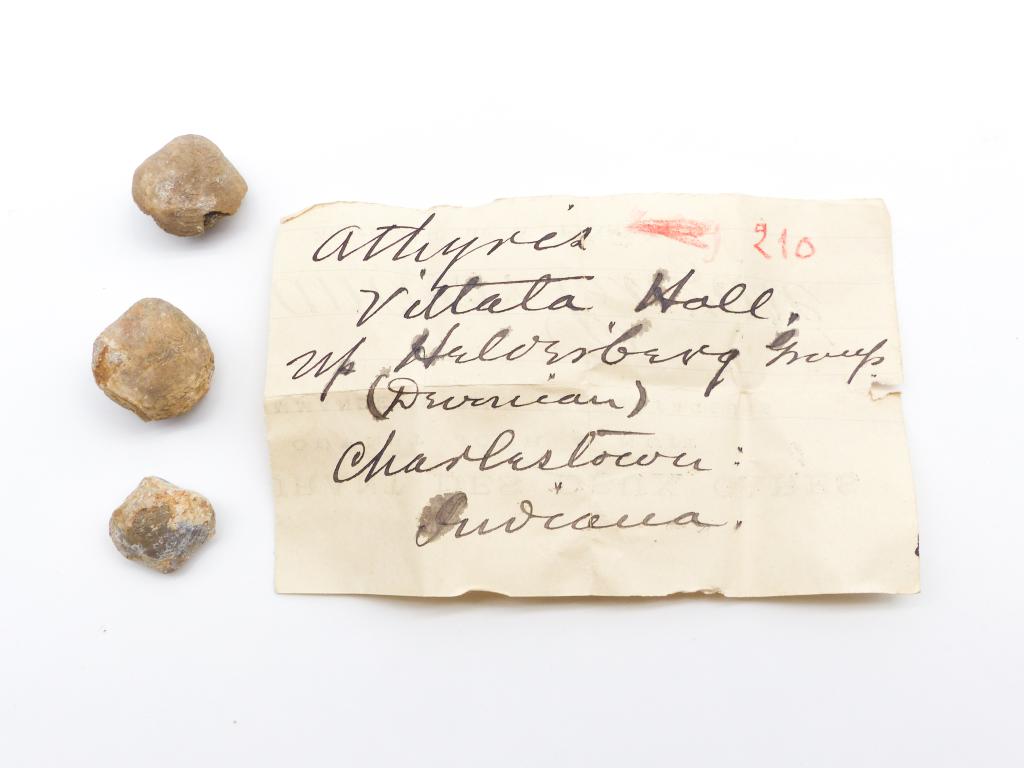 Athyris 210
Vittata Hall.
Up Helderberg Group
(Devonian)
Charlestown:
Indiana.